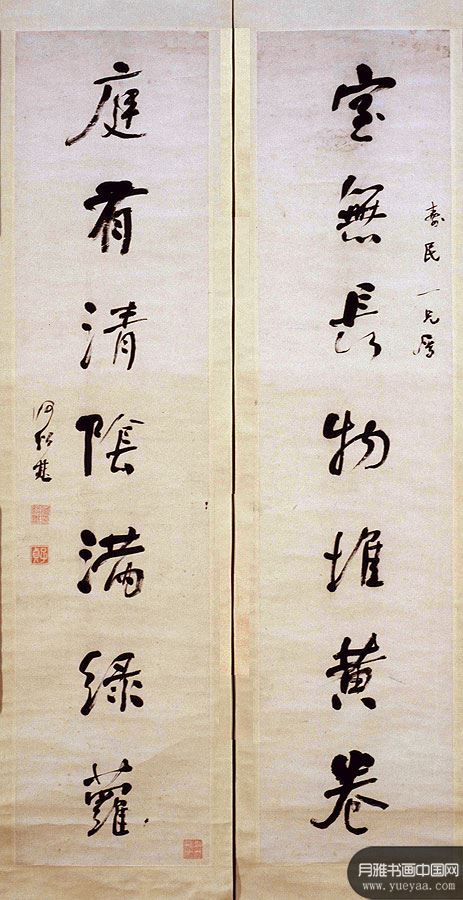 室無長物堆黃卷
壽民一兄屬
庭有清陰滿綠蘿
何紹基
月雅书画中国网
www.yueyaa.com